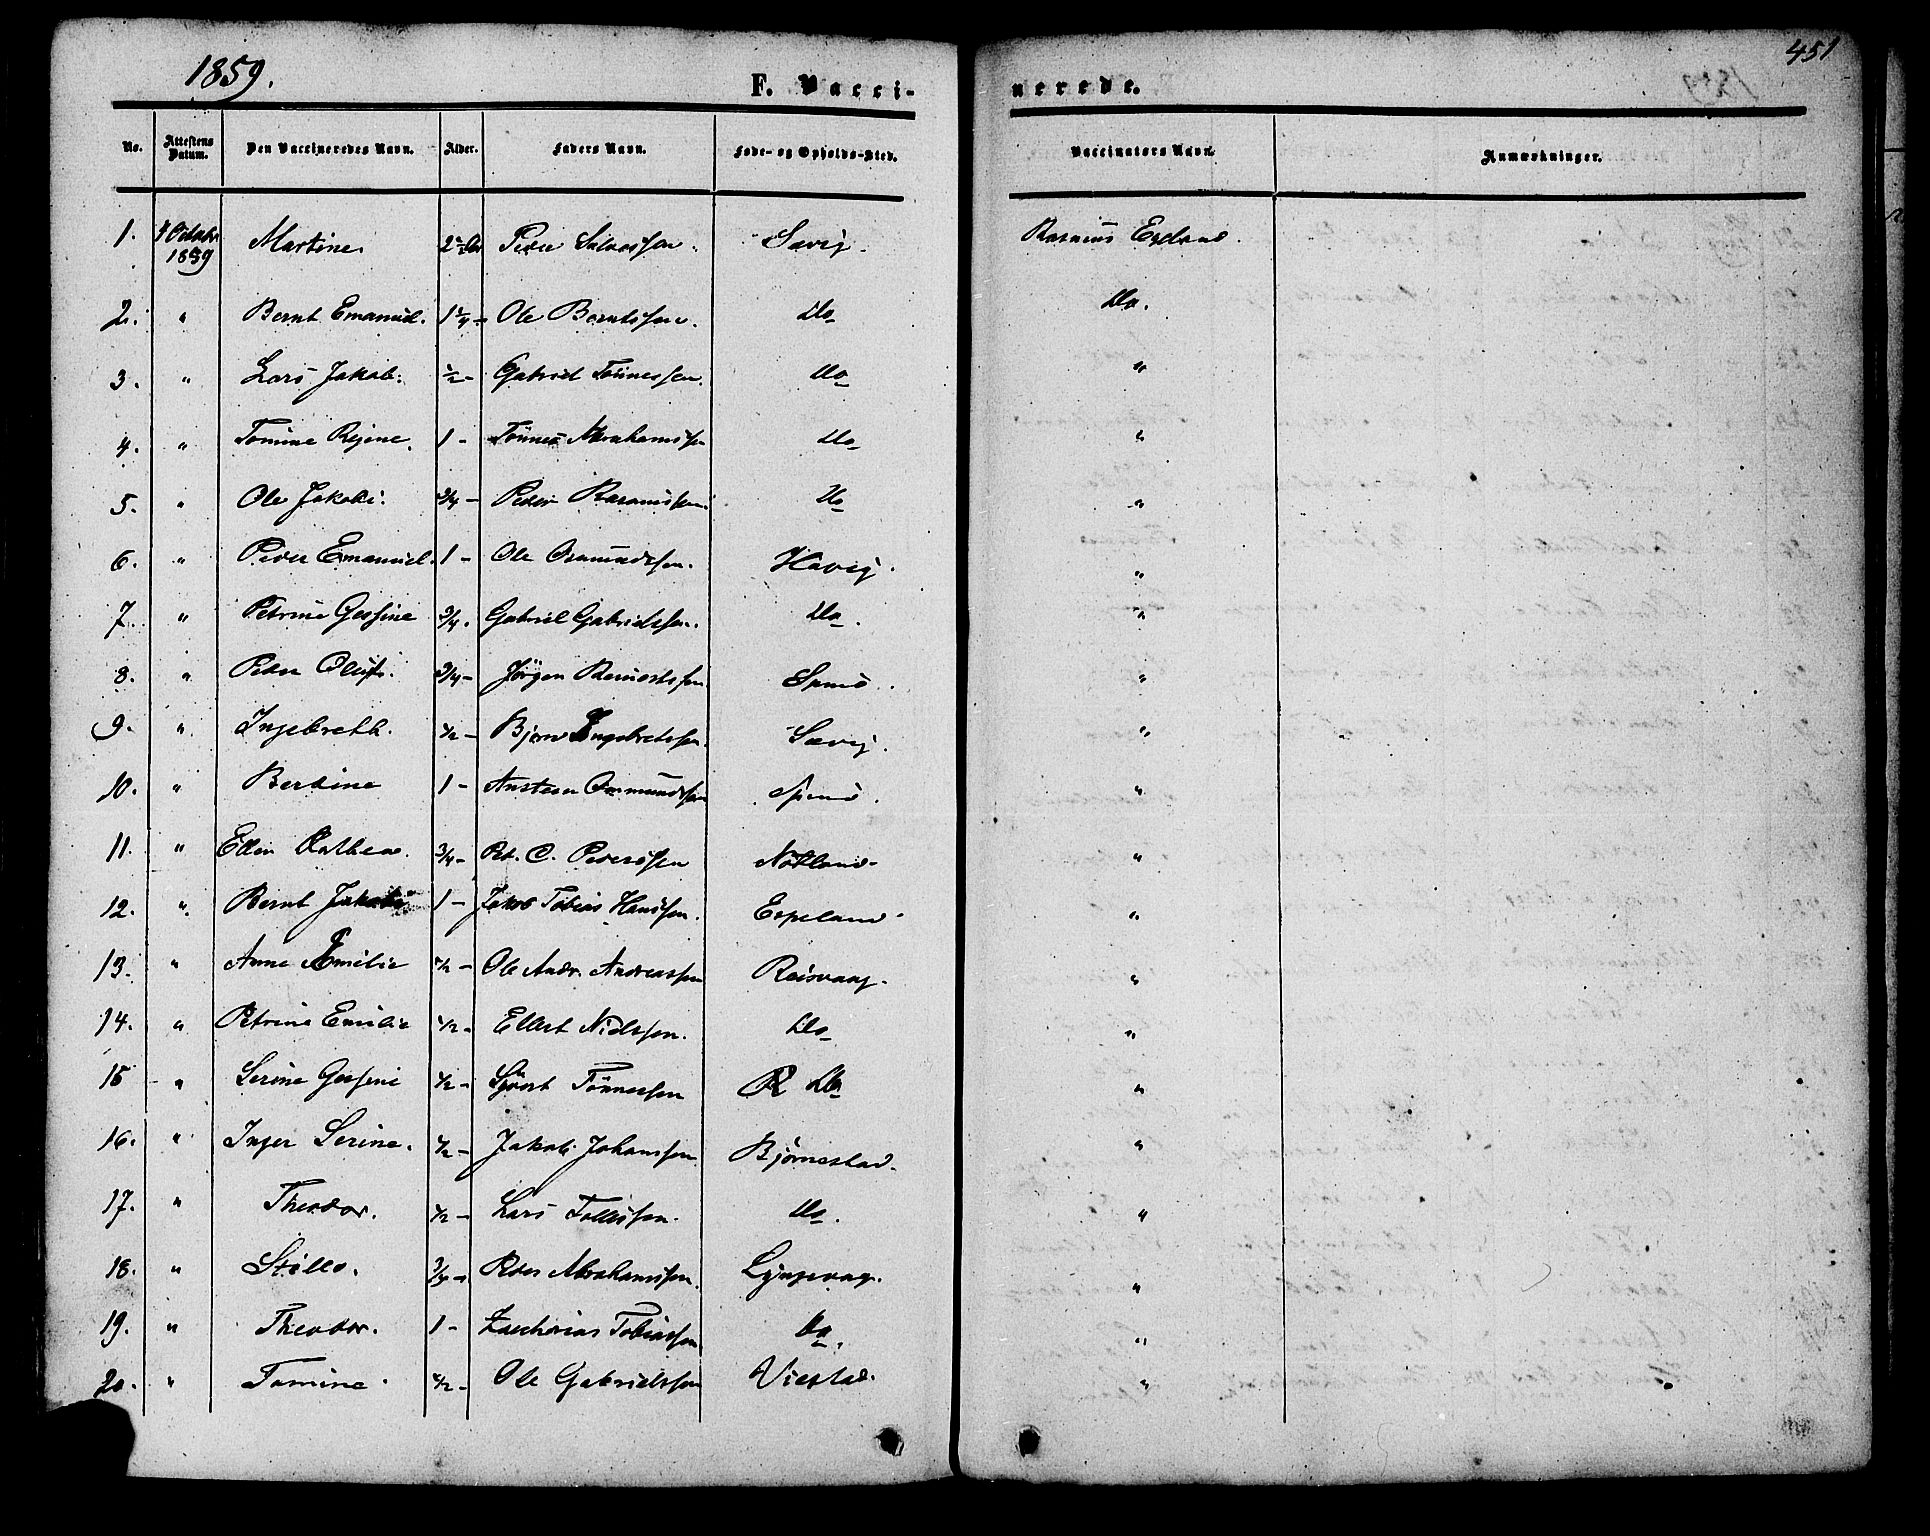 1859.
451
F. Vacci-
nerede.
No. Attestens Datum. Den Vaccineredes Navn. Alder. Faders Navn. Føde- og Opholds-Sted. Vaccinators Navn. Anmærkninger.
1. Octobr 1859 Martine. Peder Salvessen. Sævig. Rasmus
2. " Bernt Emanuel. 1 1/4 - Ole Berntssen. Do Do.
3. " Lars Jakob. 1/2 - Gabriel Tönnessen. Do "
4. " Tomine Regine. 1 - Tönnes Abrahamssen Do "
5. " Ole Jakob. 3/4 - Peder Rasmussen. Do "
6. " Peder Emanuel. 1 - Ole Osmundssen. Havig. "
7. " Petrine Gessine 3/4. Gabriel Gabrielssen. Do. "
8. " Peder Oluf. 3/4 - Jörgen "
9. " Ingebreth. 1/2 - Bjørn Ingebretssen. Sævig. "
10. " Bertine 1 - Austen Osmundssen "
11. " Ellen 3/4 - Pet. C. Pederssen Nötland "
12. " Bernt Jakob 1 - Jakob Tobias Hanssen. Espeland "
13. " Anne Emilie 1/2 - Ole Andr. Andreassen Roisvaag. "
14. " Petrine Emilie 1/2 - Ellert Nielssen. Do "
15 " Serine Gessine 1/2 - Sjövert Tönnessen R Do "
16. " Inger Serine. 1/2 - Jakob Johanssen Bjørnestad. "
17. " Theodor. 1/2 - Lars Tollissen. Do. "
18. " 3/4 - Peder Abrahamssen. Lyngsvaag. "
19. " Theodor. 1 - Zacharias Tobiassen Do. "
20. " Tomine. 1/2 - Ole Gabrielssen Viestad. "